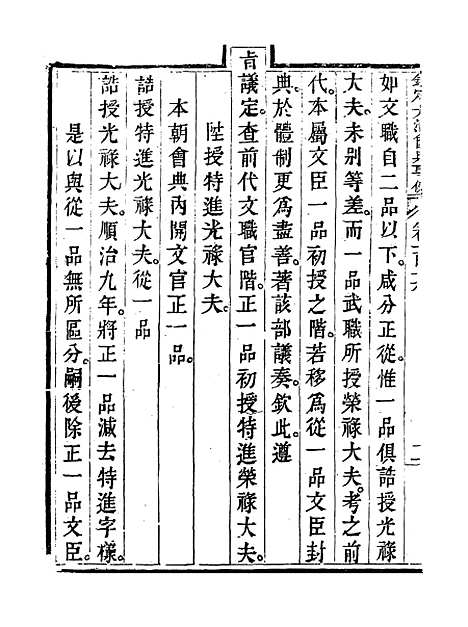 如文職自二品以下。咸分正從。惟一品俱誥授光祿
大夫。未别等差。而一品武職所授榮祿大夫。考之前
代。本屬文臣一品初授之階。若移為從一品文臣封
典。於體制更為盡善。著該部議奏。欽此。遵
旨議定。查前代文職官階。正一品初授特進榮祿大夫。
陞授特進光祿大夫。
本朝會典內開文官正一品。
誥授特進光祿大夫。從一品
誥授光祿大夫。順治九年。將正一品減去特進字樣。
是以與從一品無所區分。嗣後除正一品文臣。